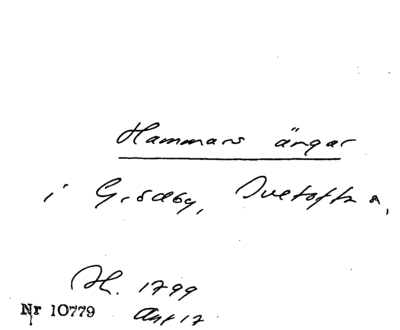 Hammars ängar
i Grödby, Ivetofta,
H. 1799
Nr 10779 Akt 17